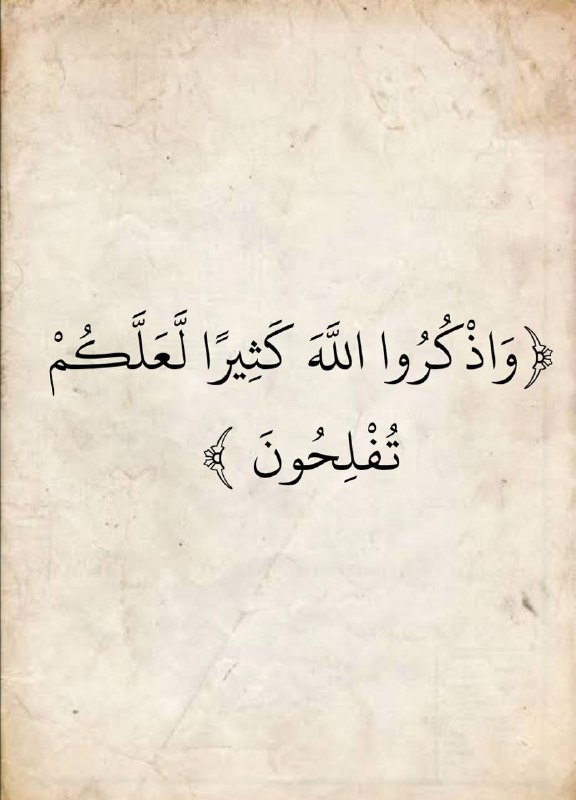 ﴿وَاذْكُرُوا اللَّهَ كَثِيرًا لَّعَلَّكُمْ
تُفْلِحُونَ ﴾